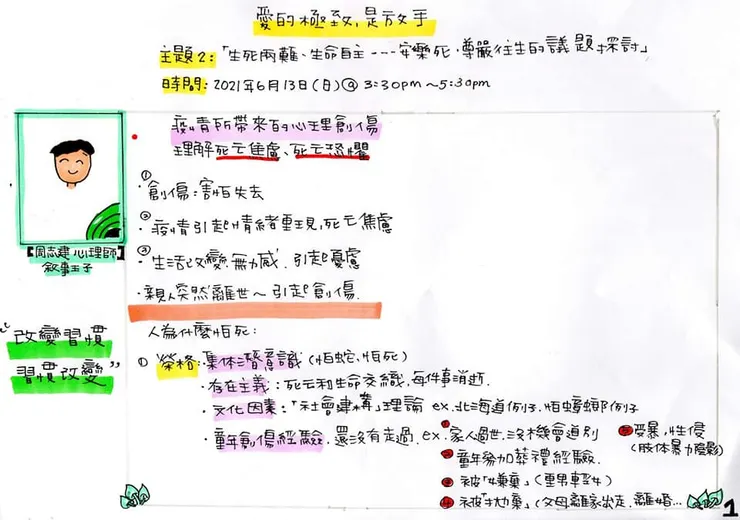 愛的極致,是放手
主題2:「生死兩難、生命自主----安樂死.尊嚴往生的議題探討」
時間:2021年6月13日(日)@3:30pm~5:30pm
疫情所帶來的心理創傷
理解死亡焦慮、死亡恐懼
① 創傷:害怕失去
② 疫情引起情緒重現,死亡焦慮
③ 生活改變無力感.引起憂慮
·親人突然離世~引起創傷.
【周志建心理師】
敘事王子
"改變習慣
習慣改變"
人為什麼怕死:
① 榮格:集体潛意識(怕蛇,怕死)
·存在主義:死亡和生命交織,每件事消逝.
·文化因素:「社會建構」理論 ex.北海道例子.怕蟑螂例子
·童年創傷經驗.還沒有走過.ex.①家人過世.沒機會道別
②童年參加葬禮經驗.
③被「嫌棄」(重男輕女)
④被「拋棄」(父母離家出走.離婚...
⑤受暴,性侵
(肢体暴力陰影)
1